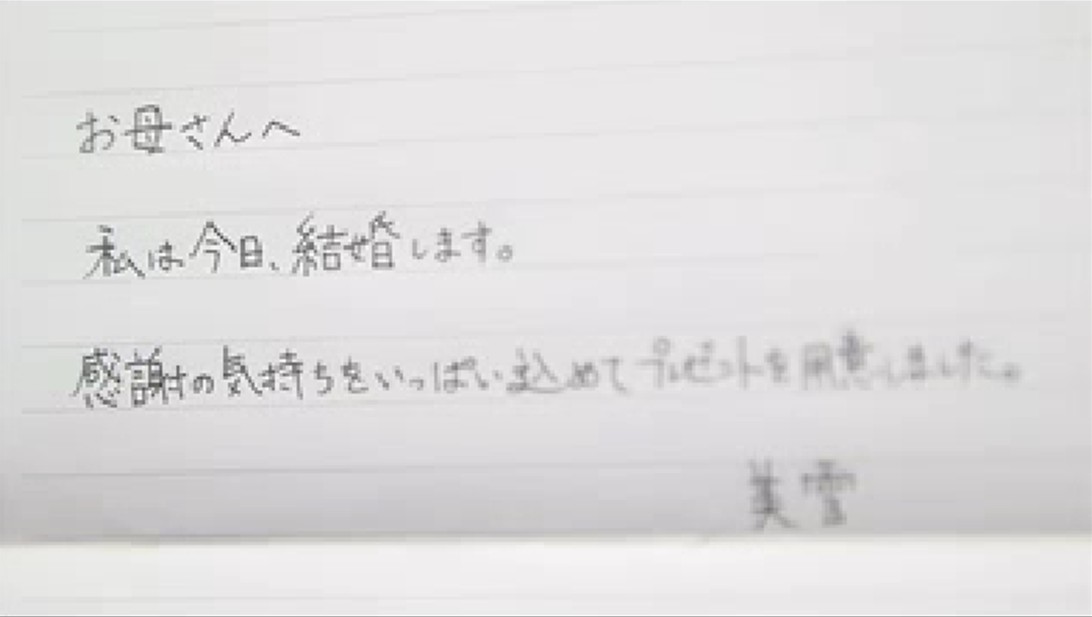 お母さんへ
私は今日、結婚します。
感謝の気持ちをいっぱい込めてプレゼントを用意しました。
美雪